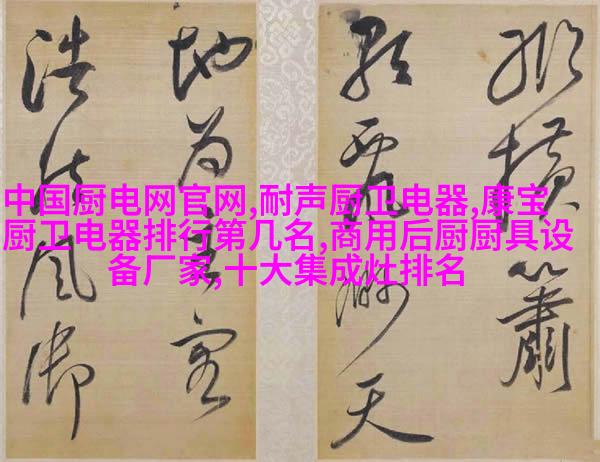 中国厨电网官网,耐声厨卫电器,康宝
厨卫电器排行第几名,商用后厨厨具设
备厂家,十大集成灶排名
横簫
天
地為主
浩然風御